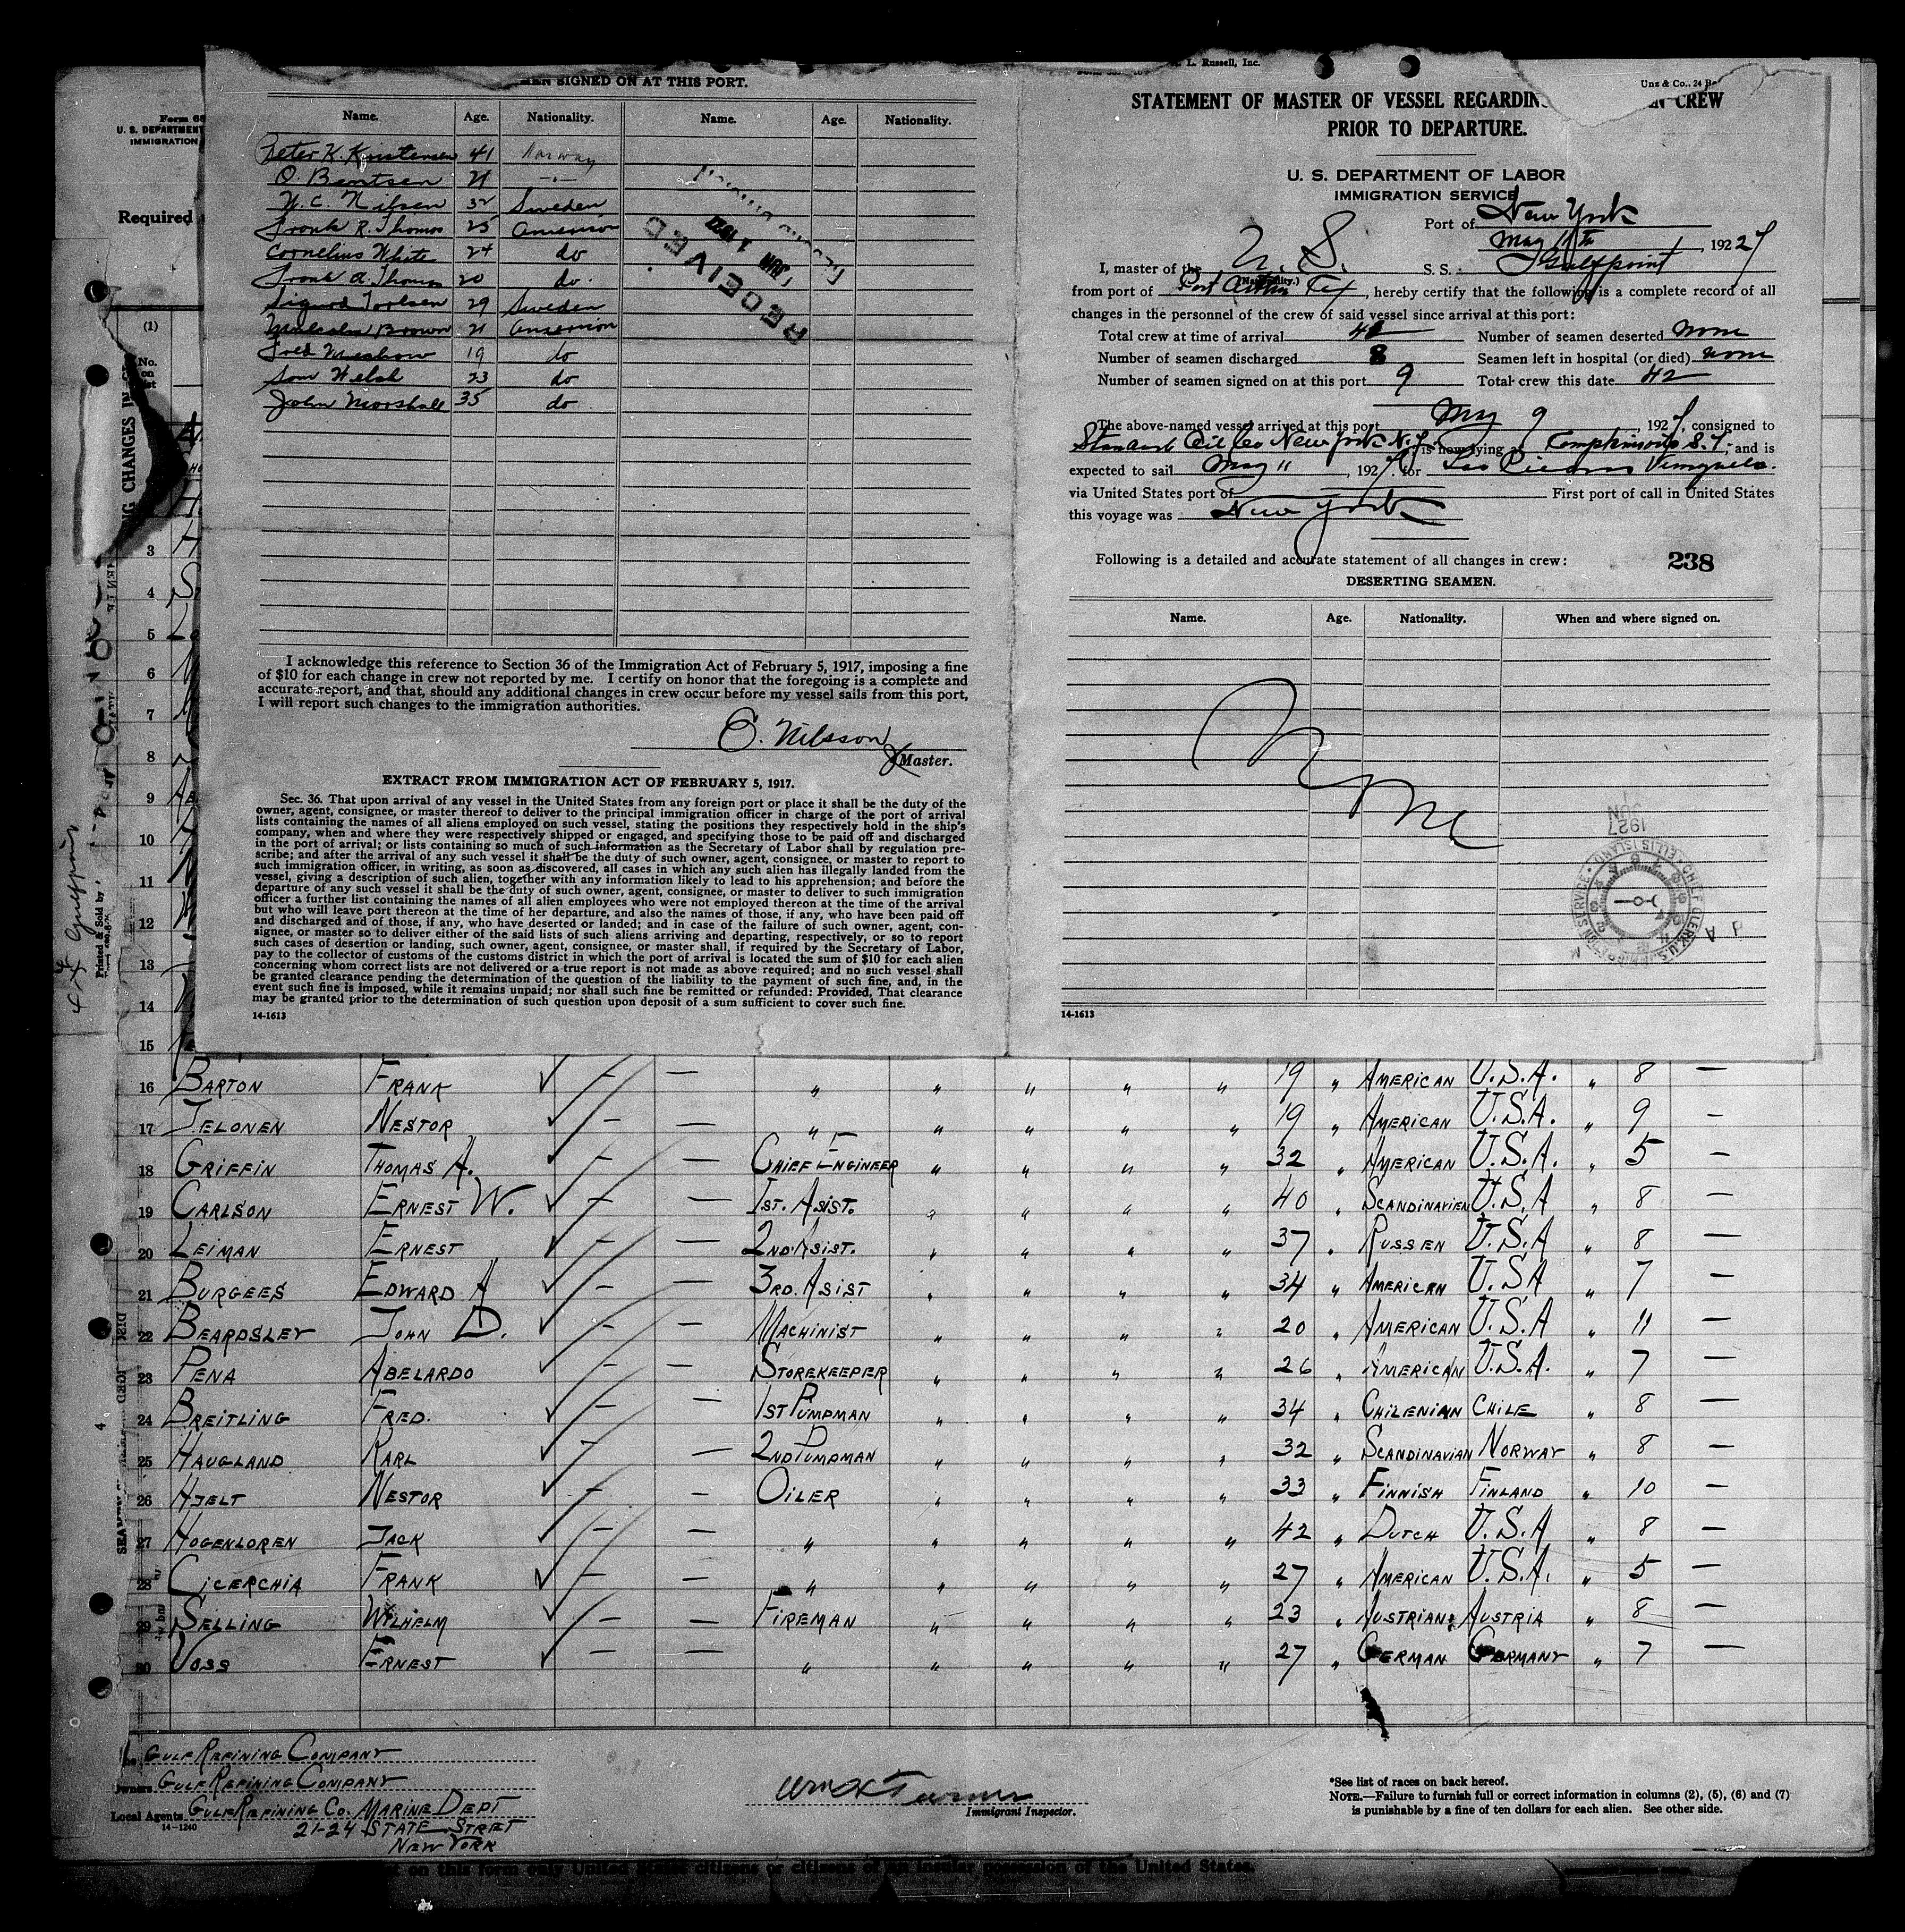 MEN SIGNED ON AT THIS PORT.
Name. Age. Nationality. Name. Age. Nationality.
Peter K. Kristensen 41 Norway
O. Bentsen 21 -"-
N. C. Nilsen 32 Sweden
Frank R. Thomas 25 American
Cornelius White 24 do
Frank A. Thomas 20 do
Sigurd 29 Sweden
Malcolm Brown 21 American
Fred 19 do
Sam Welsh 23 do
John Marshall 35 do
RECEIVED
JUN 1 1927
I acknowledge this reference to Section 36 of the Immigration Act of February 5, 1917, imposing a fine
of $10 for each change in crew not reported by me. I certify on honor that the foregoing is a complete and
accurate report, and that, should any additional changes in crew occur before my vessel sails from this port,
I will report such changes to the immigration authorities.
O. Nilsson
Master.
EXTRACT FROM IMMIGRATION ACT OF FEBRUARY 5, 1917.
Sec. 36. That upon arrival of any vessel in the United States from any foreign port or place it shall be the duty of the
owner, agent, consignee, or master thereof to deliver to the principal immigration officer in charge of the port of arrival
lists containing the names of all aliens employed on such vessel, stating the positions they respectively hold in the ship's
company, when and where they were respectively shipped or engaged, and specifying those to be paid off and discharged
in the port of arrival; or lists containing so much of such information as the Secretary of Labor shall by regulation pre-
scribe; and after the arrival of any such vessel it shall be the duty of such owner, agent, consignee, or master to report to
such immigration officer, in writing, as soon as discovered, all cases in which any such alien has illegally landed from the
vessel, giving a description of such alien, together with any information likely to lead to his apprehension; and before the
departure of any such vessel it shall be the duty of such owner, agent, consignee, or master to deliver to such immigration
officer a further list containing the names of all alien employees who were not employed thereon at the time of the arrival
but who will leave port thereon at the time of her departure, and also the names of those, if any, who have been paid off
and discharged and of those, if any, who have deserted or landed; and in case of the failure of such owner, agent, con-
signee, or master so to deliver either of the said lists of such aliens arriving and departing, respectively, or so to report
such cases of desertion or landing, such owner, agent, consignee, or master shall, if required by the Secretary of Labor,
pay to the collector of customs of the customs district in which the port of arrival is located the sum of $10 for each alien
concerning whom correct lists are not delivered or a true report is not made as above required; and no such vessel shall
be granted clearance pending the determination of the question of the liability to the payment of such fine, and, in the
event such fine is imposed, while it remains unpaid; nor shall such fine be remitted or refunded: Provided, That clearance
may be granted prior to the determination of such question upon deposit of a sum sufficient to cover such fine.
14-1613
L. Russell, Inc.
Uns & Co., 24
STATEMENT OF MASTER OF VESSEL REGARDIN N CREW
PRIOR TO DEPARTURE.
U. S. DEPARTMENT OF LABOR
IMMIGRATION SERVICE
Port of New York
May 11th, 1927
I, master of the U. S. S. S. Gulfpoint
(Nationality.)
from port of Port Arthur Tex, hereby certify that the following is a complete record of all
changes in the personnel of the crew of said vessel since arrival at this port:
Total crew at time of arrival 41 Number of seamen deserted None
Number of seamen discharged 8 Seamen left in hospital (or died) None
Number of seamen signed on at this port 9 Total crew this date 42
The above-named vessel arrived at this port May 9, 1927, consigned to
Standard Oil Co New York N.Y. is now lying at Tompkinsville S.I., and is
expected to sail May 11, 1927, for Las Piedras Venezuela.
via United States port of First port of call in United States
this voyage was New York
Following is a detailed and accurate statement of all changes in crew: 238
DESERTING SEAMEN.
Name. Age. Nationality. When and where signed on.
None
JUN 1 1927
CHIEF CLERK, U.S. IMMIGRATION SERVICE • ELLIS ISLAND
14-1613
Form 68
U. S. DEPARTMENT
IMMIGRATION
Required
(1)
No. on list
3
4
5
6
7
8
9
10
11
12
13
14
15
16 BARTON FRANK — — " " " " " 19 " AMERICAN U.S.A. " 8 —
17 JELONEN NESTOR — — " " " " " 19 " AMERICAN U.S.A. " 9 —
18 GRIFFIN THOMAS A. — — CHIEF ENGINEER " " " " 32 " AMERICAN U.S.A. " 5 —
19 CARLSON ERNEST W. — — 1ST. ASIST. " " " " 40 " SCANDINAVIEN U.S.A " 8 —
20 LEIMAN ERNEST — — 2ND. ASIST. " " " " 37 " RUSSEN U.S.A " 8 —
21 BURGEES EDWARD A — — 3RD. ASIST " " " " 34 " AMERICAN U.SA " 7 —
22 BEARDSLEY JOHN D. — — MACHINIST " " " " 20 " AMERICAN U.S.A " 11 —
23 PENA ABELARDO — — STOREKEEPER " " " " 26 " AMERICAN U.S.A. " 7 —
24 BREITLING FRED. — — 1ST PUMPMAN " " " " 34 " CHILENIAN CHILE " 8 —
25 HAUGLAND KARL — — 2ND PUMPMAN " " " " 32 " SCANDINAVIAN NORWAY " 8 —
26 HJELT NESTOR — — OILER " " " " 33 " FINNISH FINLAND " 10 —
27 HOGENLOREN JACK — — " " " " " 42 " DUTCH U.S.A " 8 —
28 CICERCHIA FRANK — — " " " " " 27 " AMERICAN U.S.A. " 5 —
29 SELLING WILHELM — — FIREMAN " " " " 23 " AUSTRIAN AUSTRIA " 8 —
30 VOSS ERNEST — — " " " " " 27 " GERMAN GERMANY " 7 —
GULF REFINING COMPANY
Owners GULF REFINING COMPANY
Local Agents GULF REFINING CO. MARINE DEPT
14-1240
21-24 STATE STREET
NEW YORK
Immigrant Inspector.
*See list of races on back hereof.
NOTE.—Failure to furnish full or correct information in columns (2), (5), (6) and (7)
is punishable by a fine of ten dollars for each alien. See other side.
on this form only United States citizens or citizens of an insular possession of the United States.